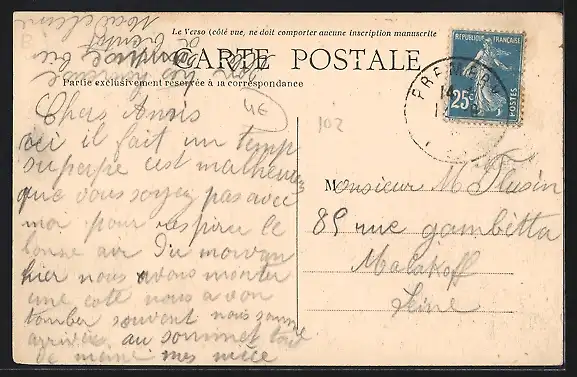 Le Verso (côté vue, ne doit comporter aucune inscription manuscrite
CARTE POSTALE
Partie exclusivement réservée à la correspondance
RÉPUBLIQUE FRANÇAISE
25c
POSTES
4€
102
Chers Amis
ici il fait un temp
superpe c'est malheureu
que vous soyez pas avec
moi pour respirer le
bonne air du morvan
hier nous avons monter
une cote nous avon
tomber souvent nous somme
arrivée au sommet tout
de meme mes nièce
bien
bientot
Madeleine
Monsieur M Flusin
85 rue gambetta
Malakoff
Seine